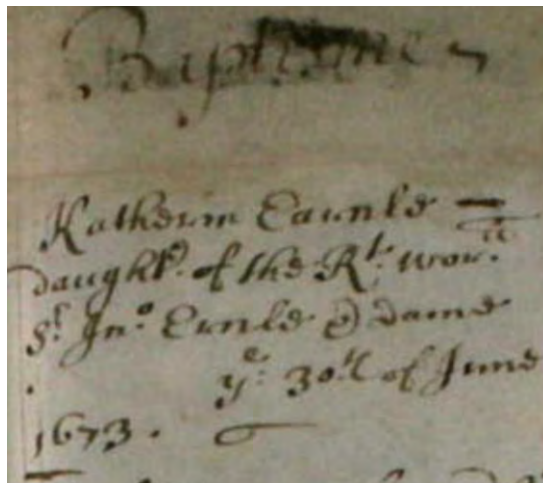 Baptisme
Katherin Earnle
daught.r of the R.t wor.ll
S.r Jn.o Ernle & dame
y.e 30.th of June
1673.